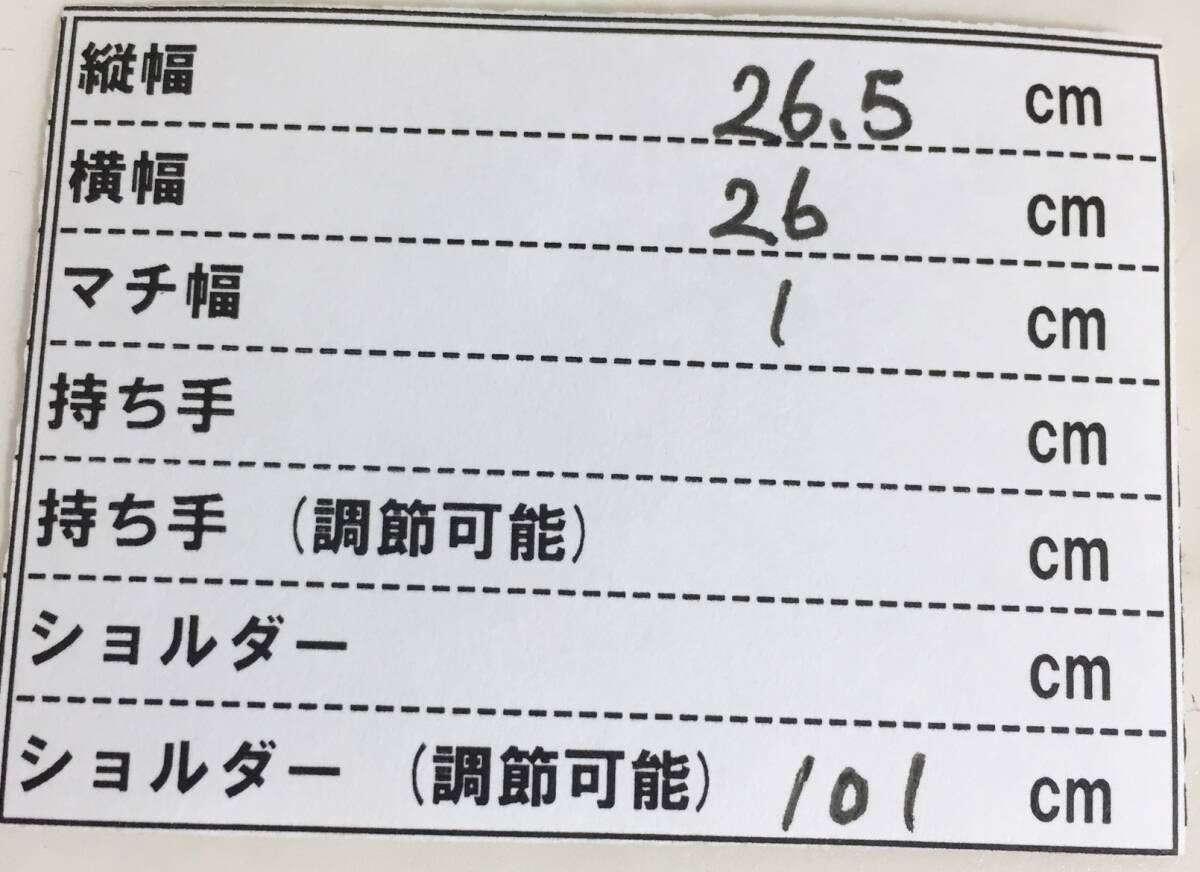 縦幅 26.5 cm
横幅 26 cm
マチ幅 1 cm
持ち手 cm
持ち手 (調節可能) cm
ショルダー cm
ショルダー (調節可能) 101 cm